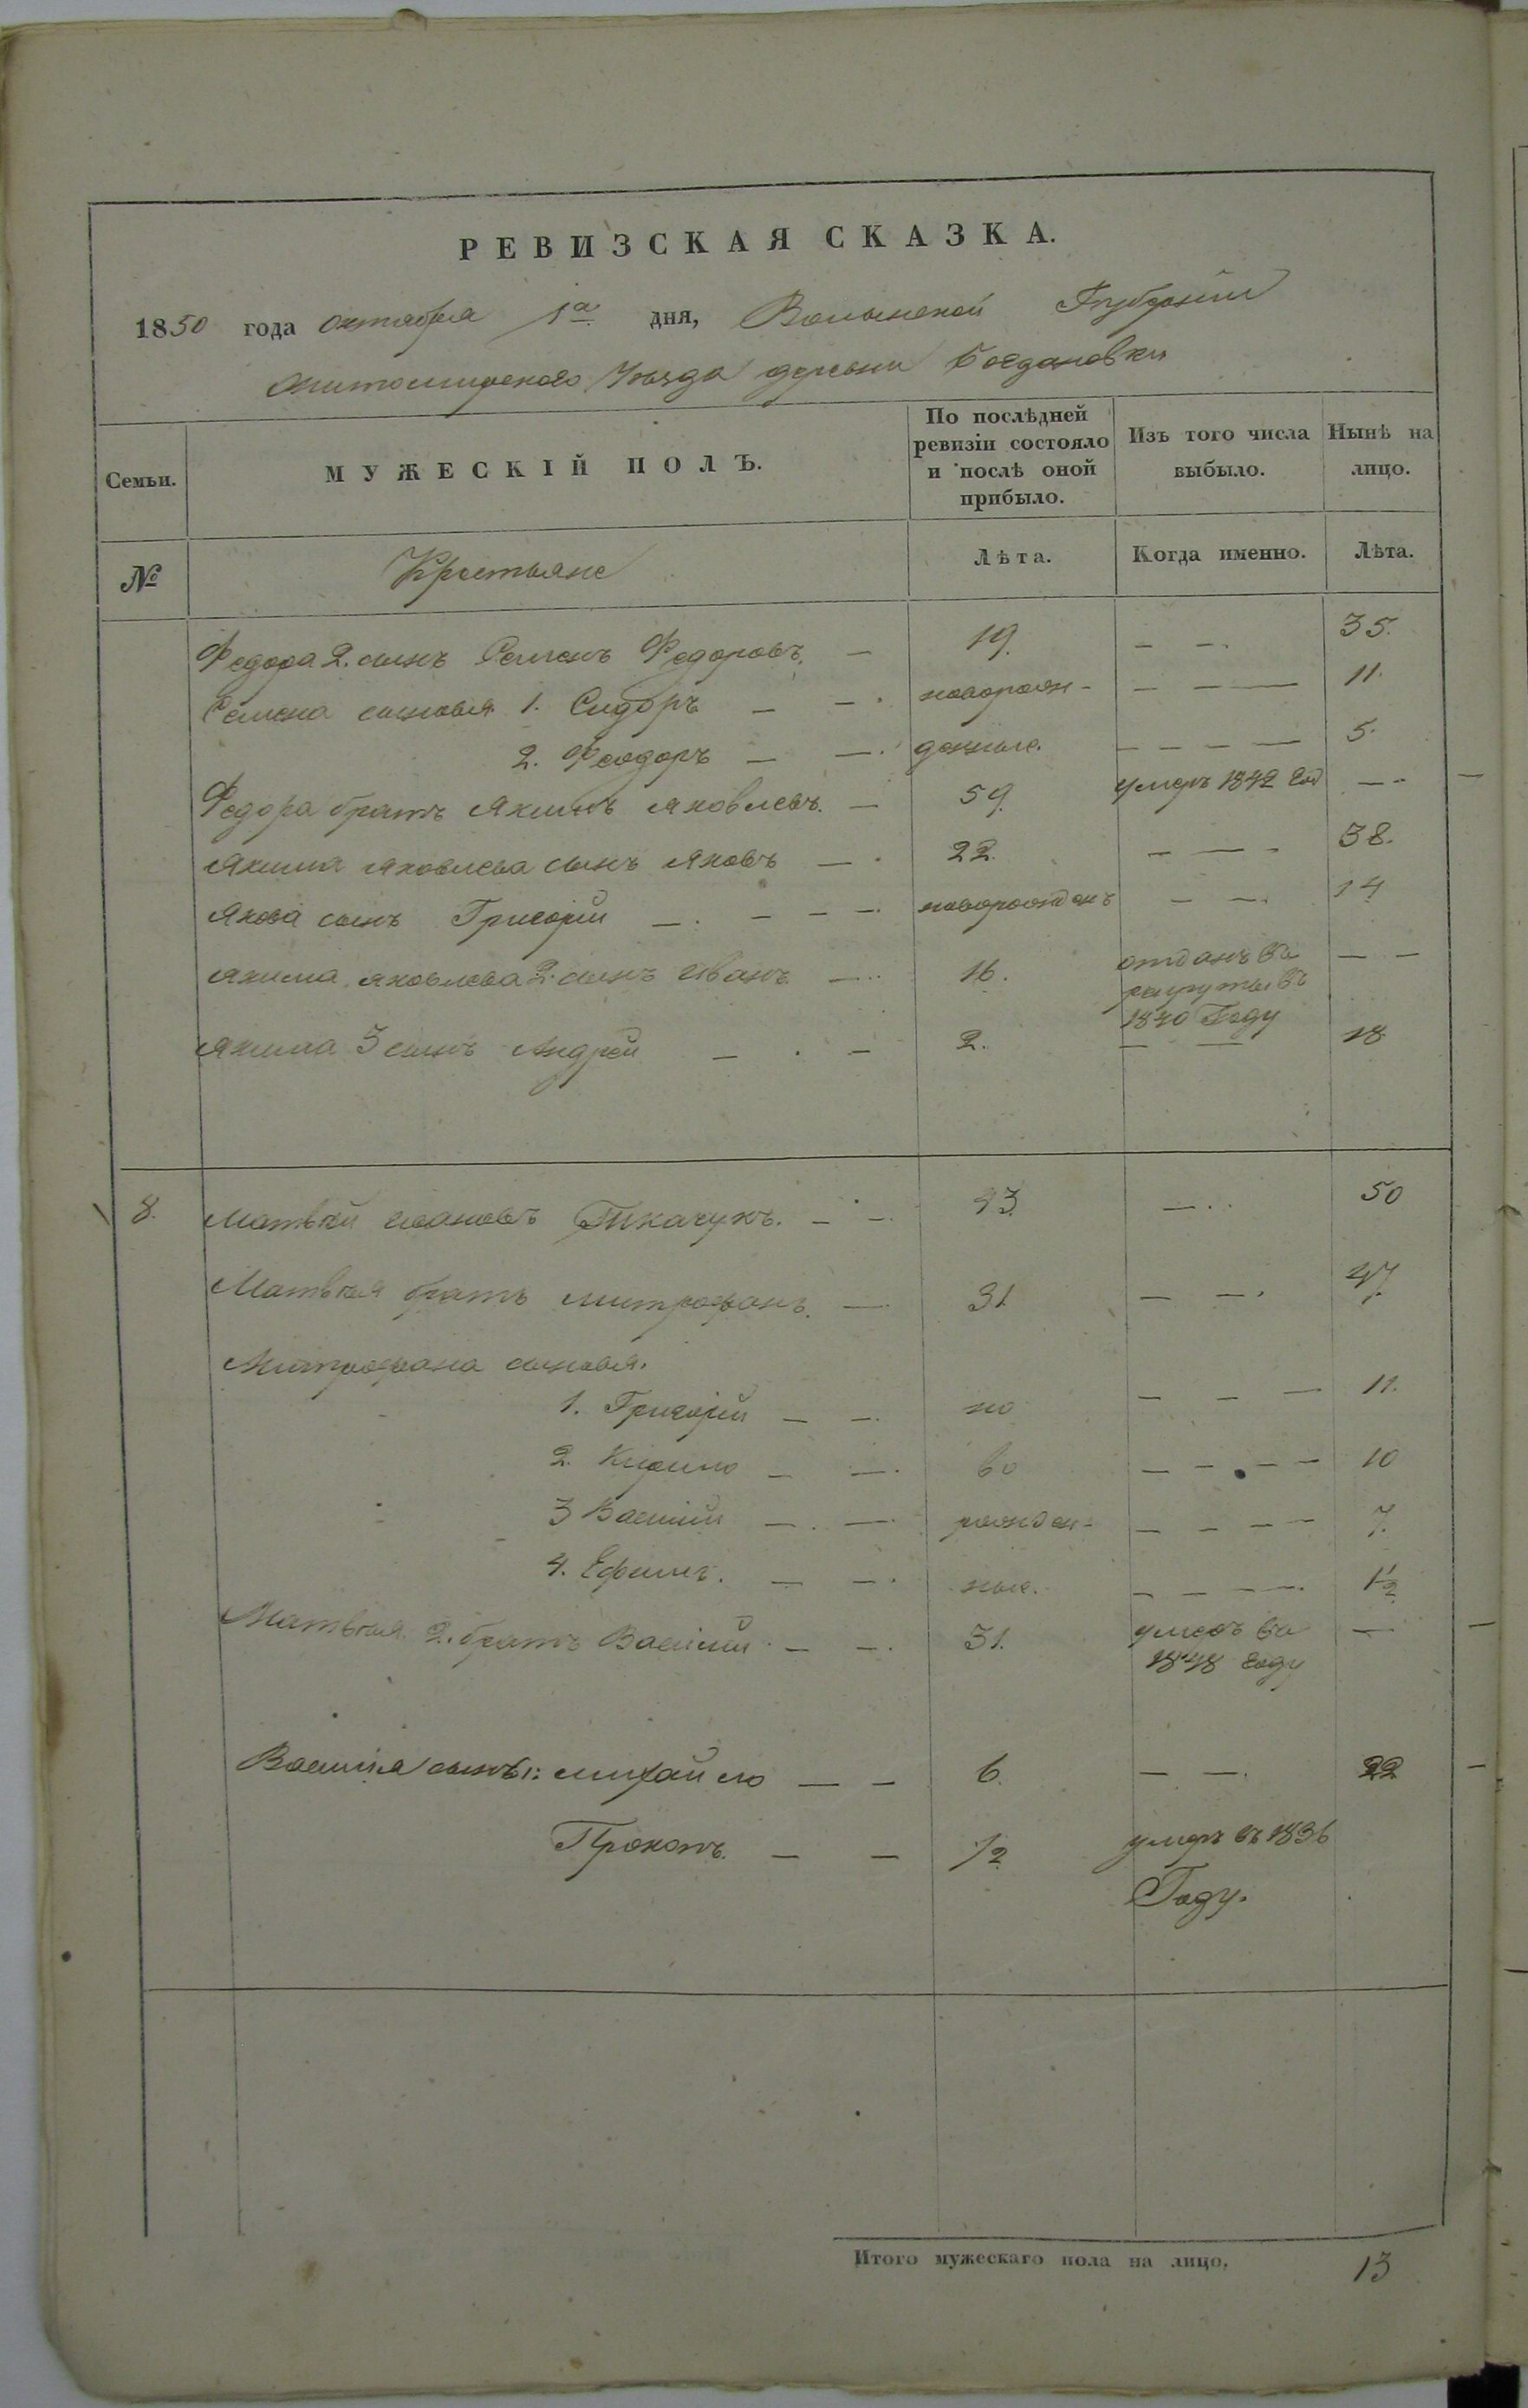 РЕВИЗСКАЯ СКАЗКА.
1850 года октября 1а дня, Волынской Губернии
Житомирского Уѣзда деревни Богдановки
Семьи. МУЖЕСКІЙ ПОЛЪ. По послѣдней ревизіи состояло и послѣ оной прибыло. Изъ того числа выбыло. Нынѣ на лицо.
№ Крестьяне Лѣта. Когда именно. Лѣта.
Федора 2. сынъ Семенъ Федоровъ. — 19. — —. 35.
Семена сыновья 1. Сидоръ — —. новорож- — — — 11.
2. Феодоръ — —. денные. — — — — 5.
Федора братъ Якимъ Яковлевъ. — 59. умеръ 1842 год — -
Якима Яковлева сынъ Яковъ — . 22. — — - 38.
Якова сынъ Григорій —. — — —. новорожденъ — —. 14
Якима Яковлева 2. сынъ Иванъ —.. 16. отданъ въ — —
рекруты въ
1840 Году
Якима 3 сынъ Андрей — . — 2. — — 18
8. Матвѣй Ивановъ Ткачукъ. — —. 33. —.. 50
Матвѣя братъ Митрофанъ. — 31. — —. 47.
Митрофана сыновья.
1. Григорій — —. но — — — 11.
2. Кирило — —. во — — — — 10
3 Василій —. —. рожден- — — — — 7.
4. Ефимъ. — —. ные. — — — —. 1½
Матвѣя 2. братъ Василій. — —. 31. умеръ въ —
1848 году
Василія сынъ 1: Михайло — — 6. — —. 22
Прокопъ. — — ½ умеръ въ 1836
Году.
Итого мужескаго пола на лицо. 13